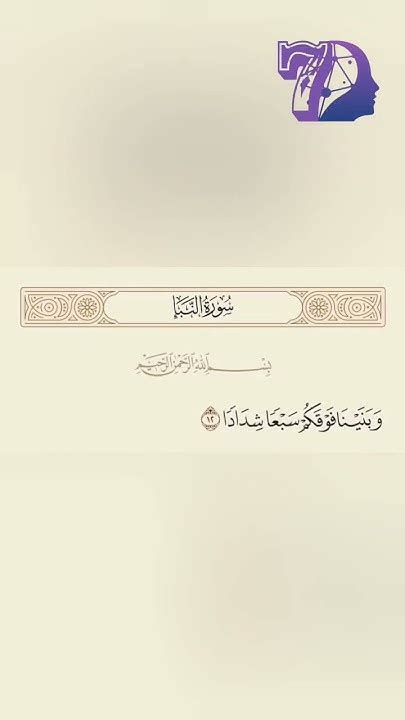 7D
سُورَةُ النَّبَإِ
بِسْمِ اللَّهِ الرَّحْمَٰنِ الرَّحِيمِ
وَبَنَيْنَا فَوْقَكُمْ سَبْعًا شِدَادًا ١٢